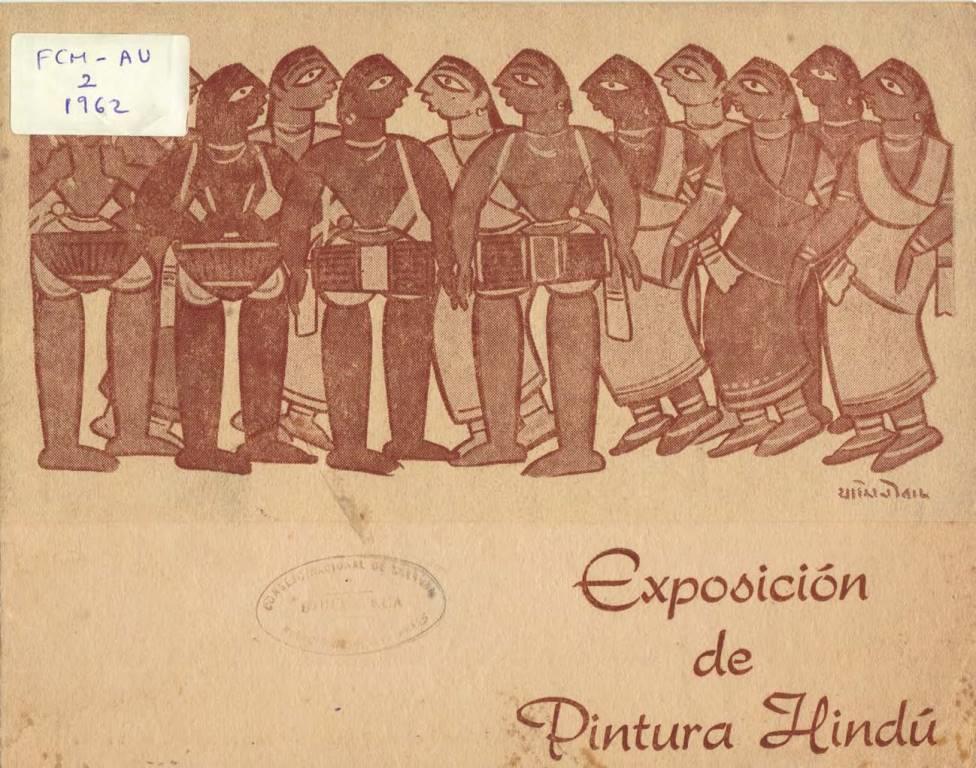 FCM - AU
2
1962
যামিনী রায়
CONSEJO NACIONAL DE CULTURA
BIBLIOTECA
Exposición
de
Pintura Hindú